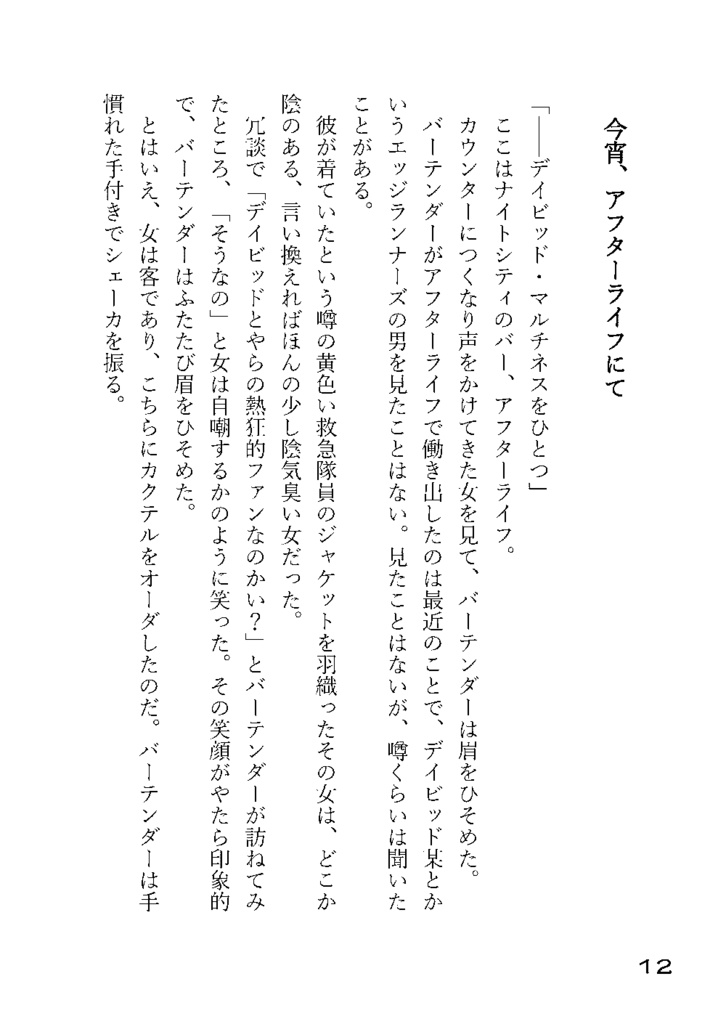 今宵、アフターライフにて
「――デイビッド・マルチネスをひとつ」
ここはナイトシティのバー、アフターライフ。
カウンターにつくなり声をかけてきた女を見て、バーテンダーは眉をひそめた。
バーテンダーがアフターライフで働き出したのは最近のことで、デイビッド某とか
いうエッジランナーズの男を見たことはない。見たことはないが、噂くらいは聞いた
ことがある。
彼が着ていたという噂の黄色い救急隊員のジャケットを羽織ったその女は、どこか
陰のある、言い換えればほんの少し陰気臭い女だった。
冗談で「デイビッドとやらの熱狂的ファンなのかい？」とバーテンダーが訪ねてみ
たところ、「そうなの」と女は自嘲するかのように笑った。その笑顔がやたら印象的
で、バーテンダーはふたたび眉をひそめた。
とはいえ、女は客であり、こちらにカクテルをオーダしたのだ。バーテンダーは手
慣れた手付きでシェーカを振る。
12